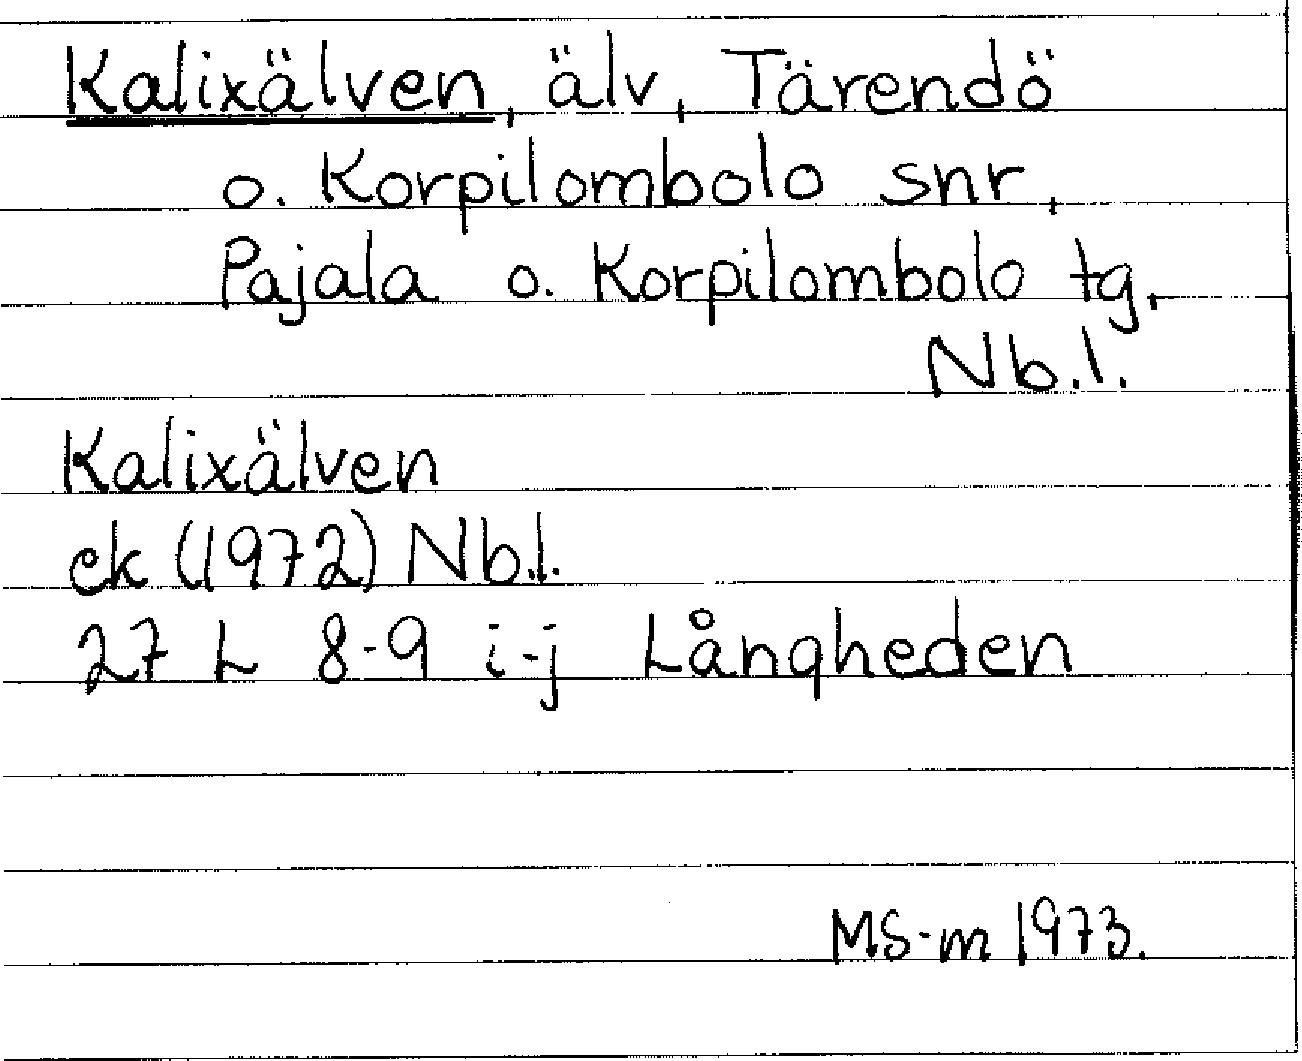 Kalixälven, älv, Tärendö
o. Korpilombolo snr,
Pajala o. Korpilombolo tg,
Nb.l.
Kalixälven
ek (1972) Nb.l.
27 L 8-9 i-j Långheden
MS-m 1973.